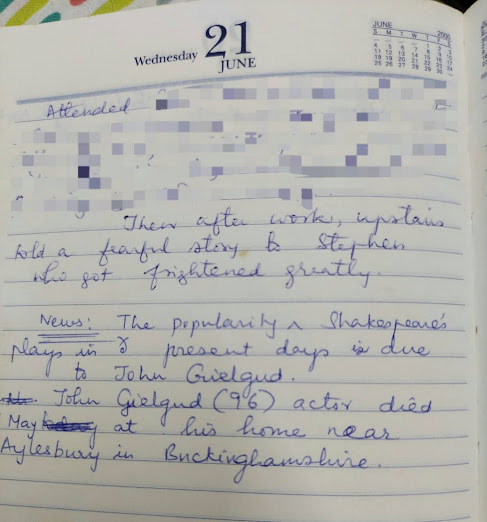 Wednesday 21 JUNE
JUNE 2006
S M T W T F S
1 2 3
4 5 6 7 8 9 10
11 12 13 14 15 16 17
18 19 20 21 22 23 24
25 26 27 28 29 30
Attended
Then after work, upstairs
told a fearful story to Stephen
who got frightened greatly.
News: The popularity Shakespeare's
plays in present days is due
to John Gielgud.
John Gielgud (96) actor died
May at his home near
Aylesbury in Buckinghamshire.